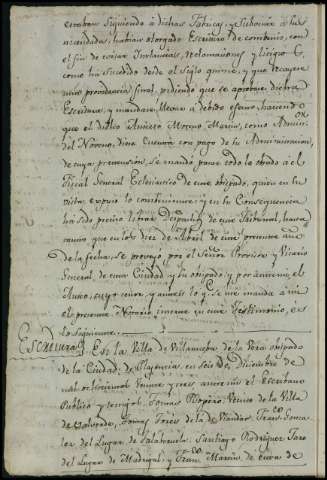 estaban siguiendo a dichas fabricas, y subcesion a las
necesidades, habian otorgado Escritura de combenio, con
el fin de evitar Instancias, reclamaciones y litigios
como ha sucedido desde el siglo quince, y que recayere
una providencia final, pidiendo que se apruebe dicha
Escritura, y mandase llevar a debido efecto haciendo
que el dicho Moreno Martin, como Admin.or
del Noveno, diera Cuenta con pago de la Administracion,
de cuya pretension, se mandó pasar todo lo obrado á el
Fiscal General Eclesiastico de este obispado, quien en su
vista expuso lo combeniente; y en su Consequencia
ha sido preciso librar Despacho de este Tribunal, hasta
tanto que en los diez de Abril de este presente año
de la fecha, se proveyó por el Señor Provisor y Vicario
General, de esta Ciudad y su obispado y por ante mi, el
Auto, cuyo tenor, y aun el lo q.e se me manda á mi
el presente Notario inserte en este Testimonio, es
lo siguiente
Escritura En la Villa de Villanueva de la Vera obispado
de la Ciudad de Plasencia, en seis de Diciembre de
mil ochocientos veinte y tres ante mi el Escribano
Publico y testigos: Tomas Ropero Vecino de la Villa
de Valverde, Tomas Torés de la de Viandar, Fran.co Gonza
lez del Lugar de Talaberuela: Santiago Rodriguez Taro
del Lugar de Madrigal; y Fran.co Martin de esta de